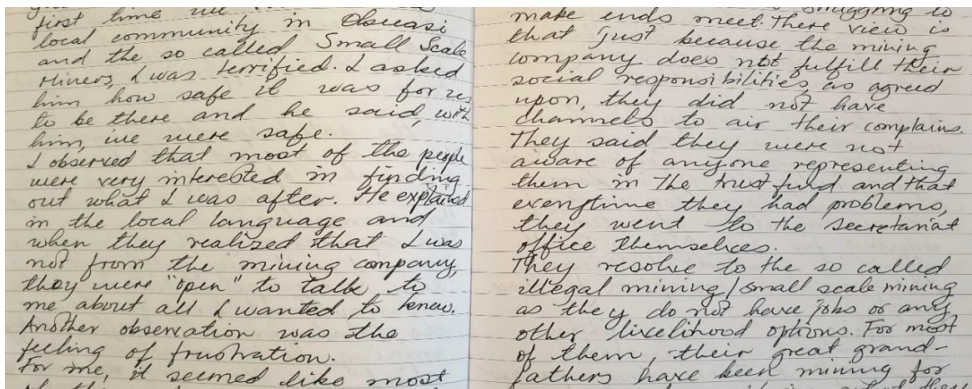 first time we
local community in Obuasi
and the so called Small Scale
Miners, I was terrified. I asked
him how safe it was for us
to be there and he said, with
him, we were safe.
I observed that most of the people
were very interested in finding
out what I was after. He explained
in the local language and
when they realized that I was
not from the mining company,
they were "open" to talk to
me about all I wanted to know.
Another observation was the
feeling of frustration.
For me, it seemed like most
make ends meet. There view is
that just because the mining
company does not fulfill their
social responsibilities as agreed
upon, they did not have
channels to air their complains.
They said they were not
aware of anyone representing
them in the trust fund and that
everytime they had problems,
they went to the secretariat
office themselves.
They resolve to the so called
illegal mining/small scale mining
as they do not have jobs or any
other livelihood options. For most
of them, their great grand-
fathers have been mining for